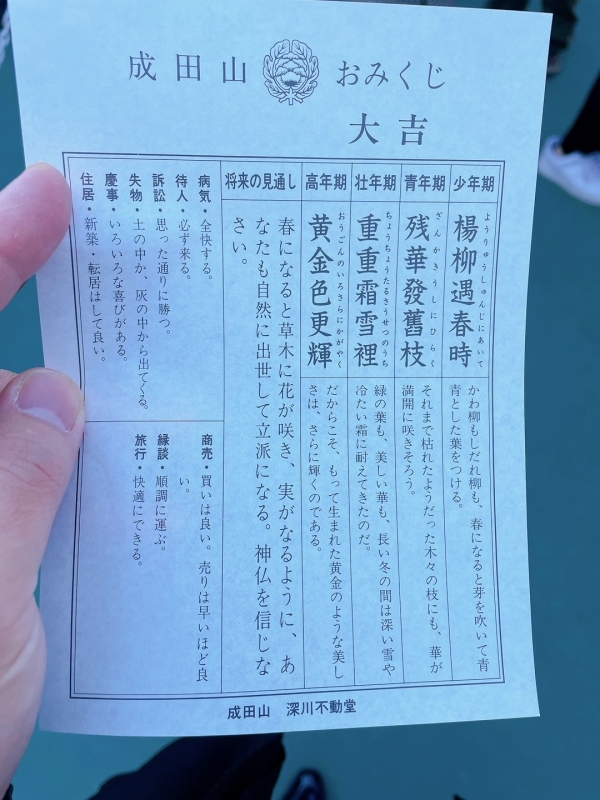 成田山 おみくじ
大吉
少年期
ようりゅうしゅんじにあいて
楊柳遇春時
かわ柳もしだれ柳も、春になると芽を吹いて青
青とした葉をつける。
青年期
ざんかきうしにひらく
残華發舊枝
それまで枯れたようだった木々の枝にも、華が
満開に咲きそろう。
壮年期
ちょうちょうたるさうせつのうち
重重霜雪裡
緑の葉も、美しい華も、長い冬の間は深い雪や
冷たい霜に耐えてきたのだ。
高年期
おうごんのいろさらにかがやく
黄金色更輝
だからこそ、もって生まれた黄金のような美し
さは、さらに輝くのである。
将来の見通し
春になると草木に花が咲き、実がなるように、あ
なたも自然に出世して立派になる。神仏を信じな
さい。
病気・全快する。
待人・必ず来る。
訴訟・思った通りに勝つ。
失物・土の中か、灰の中から出てくる。
慶事・いろいろな喜びがある。
住居・新築・転居はして良い。
商売・買いは良い。売りは早いほど良
い。
縁談・順調に運ぶ。
旅行・快適にできる。
成田山 深川不動堂